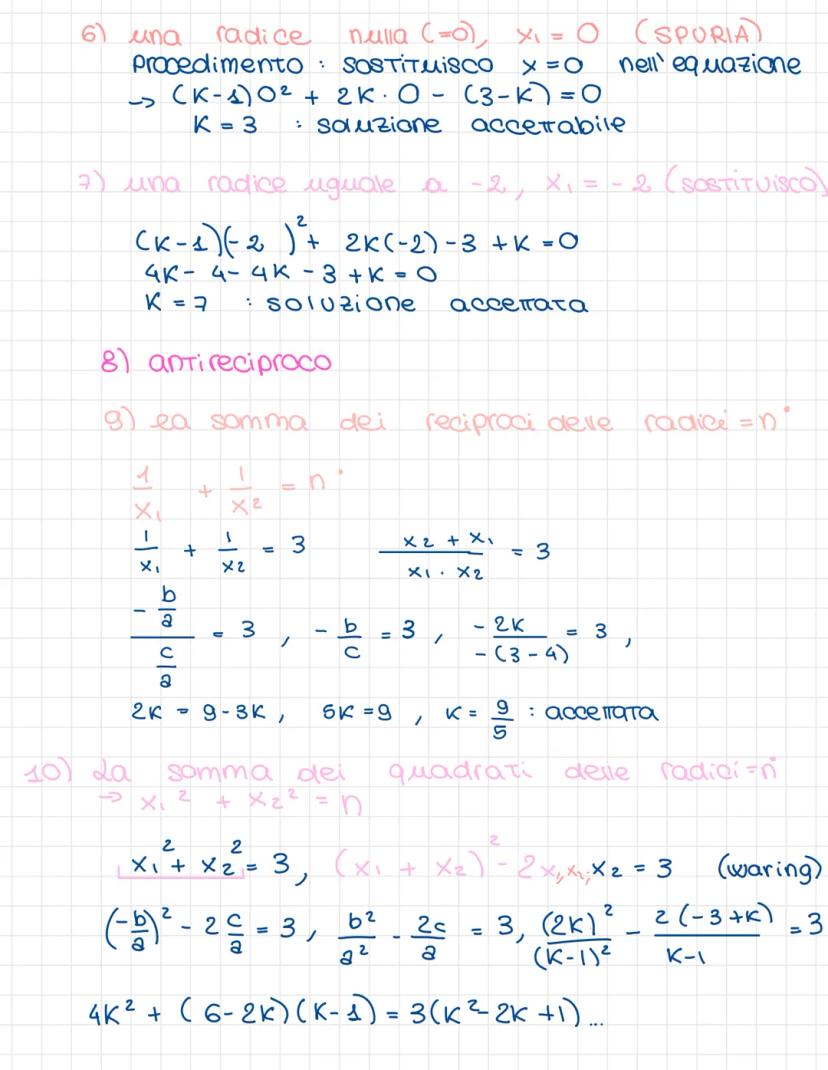 6) una radice nulla (=0), x₁ = 0 (SPURIA)
procedimento : SOSTITUISCO x=0 nell'equazione
→ (K-1)0² + 2K·0 - (3-K)=0
K = 3 : soluzione accettabile
7) una radice uguale a -2, x₁ = -2 (SOSTITUISCO)
(K-1)(-2 )² + 2K(-2) -3 +K =0
4K - 4 - 4K - 3 + K = 0
K = 7 : soluzione accettata
8) antireciproco
9) la somma dei reciproci delle radici = n°
1/x₁ + 1/x₂ = n°
1/x₁ + 1/x₂ = 3 (x₂ + x₁)/(x₁ · x₂) = 3
(-b/a)/(c/a) = 3 , -b/c = 3 , -2K/-(3-4) = 3 ,
2K = 9-3K , 5K = 9 , K = 9/5 : accettata
10) La somma dei quadrati delle radici = n°
→ x₁² + x₂² = n
x₁² + x₂² = 3, (x₁ + x₂)² - 2x₁x₂,x₂ = 3 (waring)
(-b/a)² - 2c/a = 3, b²/a² - 2c/a = 3, (2K)²/(K-1)² - 2(-3+K)/K-1 = 3
4K² + (6-2K)(K-1) = 3(K²-2K+1)...